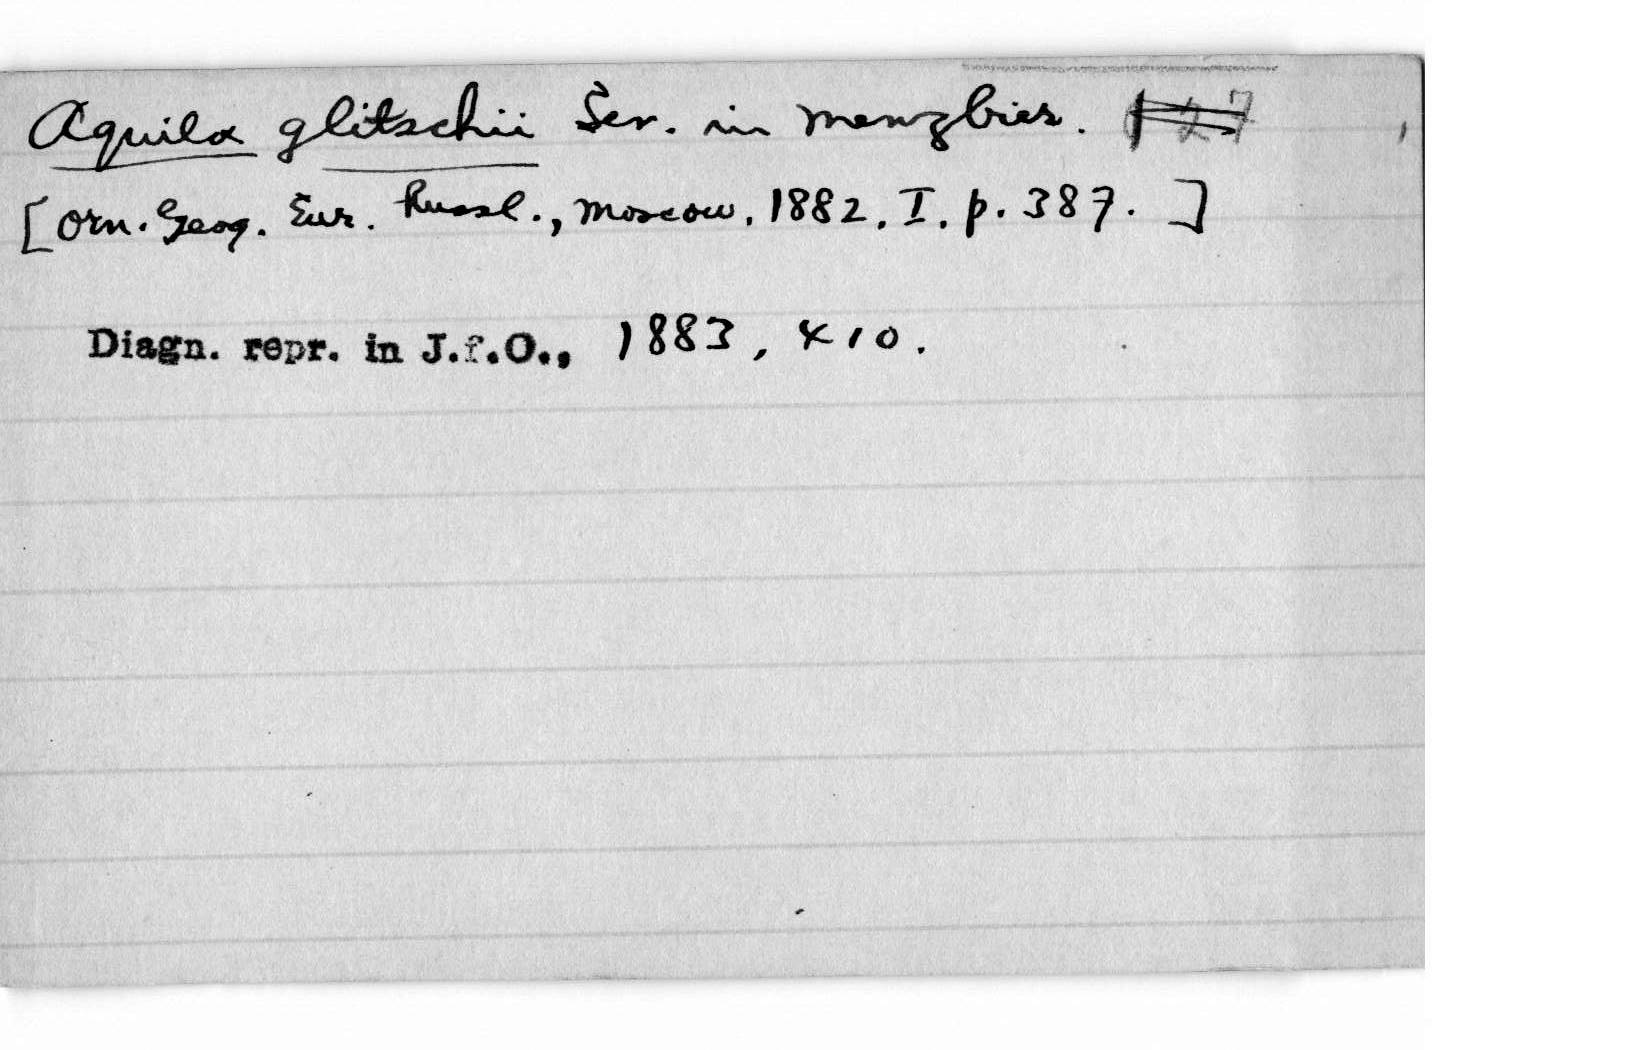 Aquila glitschii Sev. in Menzbier.
[Orn. Geog. Eur. Russl., Moscow, 1882, I, p. 387. ]
Diagn. repr. in J.f.O., 1883, 410.